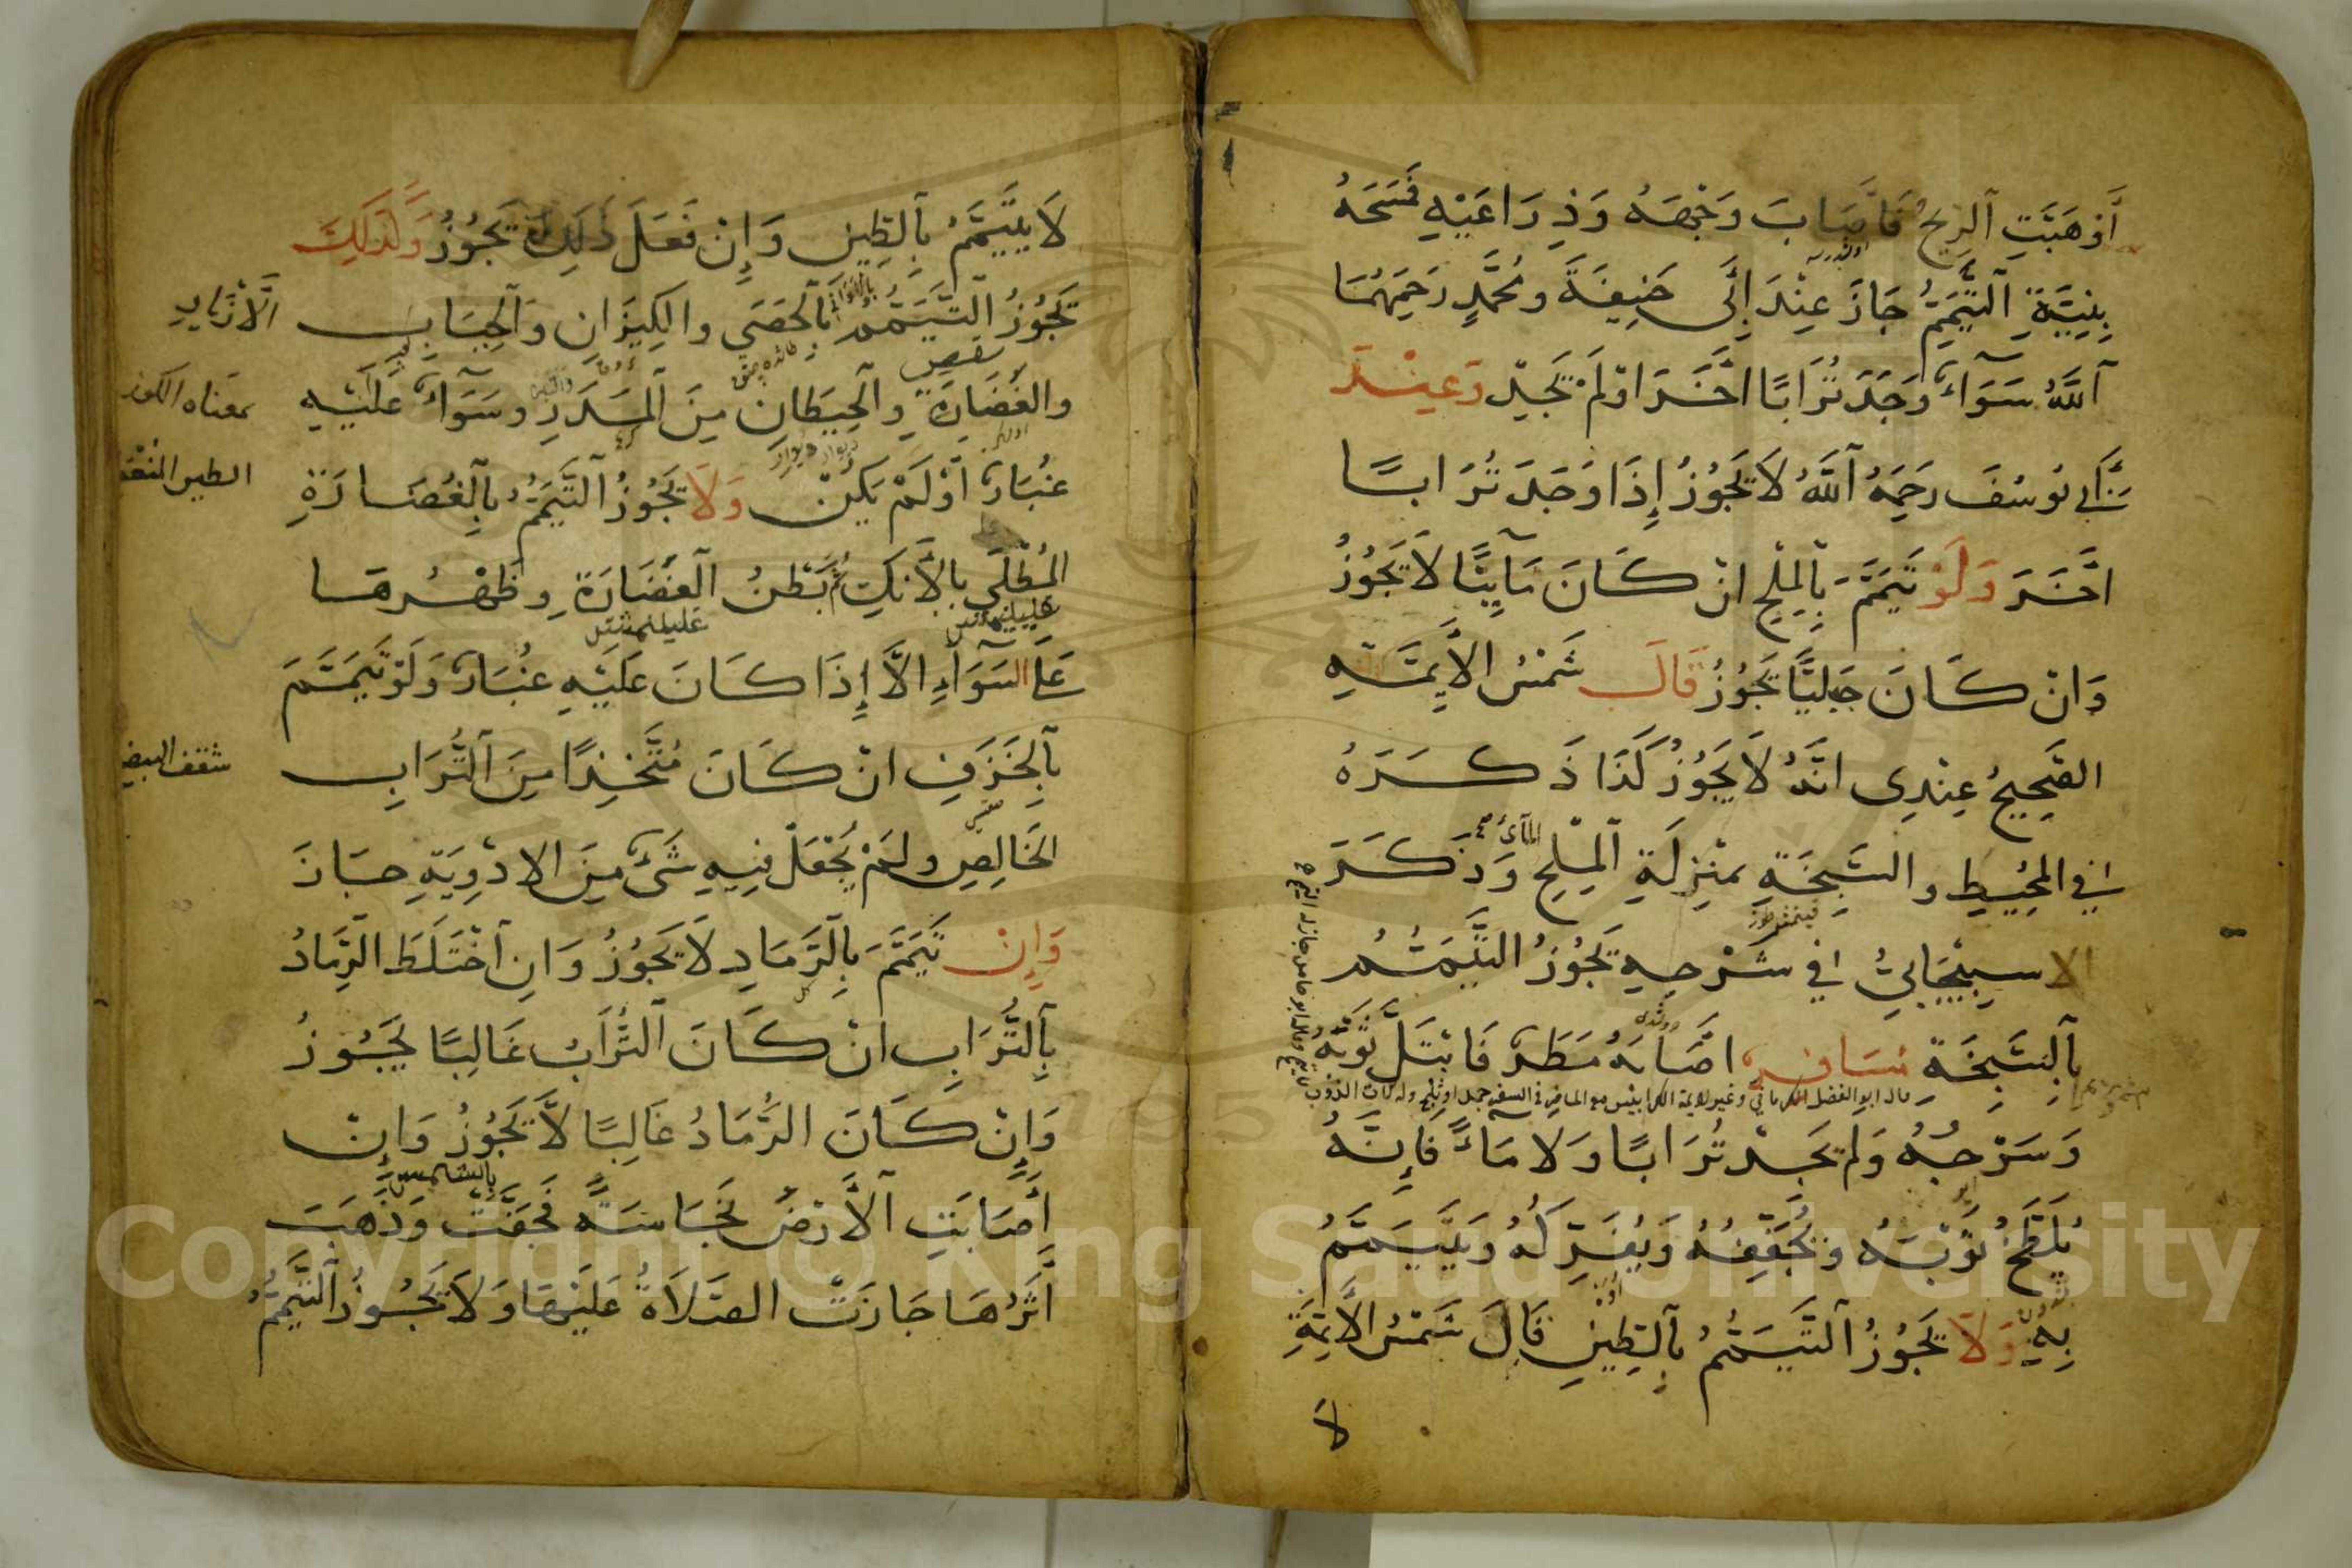 أَوْهَبَّتِ ٱلرِّيحُ فَأَصَابَ وَجْهَهُ وَذِرَاعَيْهِ فَمَسَحَهُ
بِنِيَّةِ ٱلتَّيَمُّمِ جَازَ عِنْدَ أَبِى حَنِيفَةَ وَمُحَمَّدٍ رَحِمَهُمَا
ٱللَّهُ سَوَآءٌ وَجَدَ تُرَابًا اخَرَ اوْلَمْ يَجِدْ وَعِنْدَ
أَبِي يُوسُفَ رَحِمَهُ ٱللَّهُ لَا يَجُوزُ إِذَا وَجَدَ تُرَابًا
اخَرَ وَلَوْ تَيَمَّمَ بِٱلْمِلْحِ انْ كَانَ مَآئِيًّا لَا يَجُوزُ
وَانْ كَانَ جَبَلِيًّا يَجُوزُ قَالَ شَمْسُ الْأَئِمَّةِ
الصَّحِيحُ عِنْدِى انَّهُ لَا يَجُوزُ كَذَا ذَكَرَهُ
فِي الْمُحِيطِ وَالسَّبِخَةِ بِمَنْزِلَةِ ٱلْمِلْحِ وَذَكَرَ
المآئى صح
الاسبيجابيُّ في شَرْحِهِ يَجُوزُ التَّيَمُّمُ
بِٱلسَّبِخَةِ مُسَافِرٌ اصَابَهُ مَطَرٌ فَابْتَلَّ ثَوْبُهُ
وَسَرْجُهُ وَلَمْ يَجِدْ تُرَابًا وَلَا مَآءً فَإِنَّهُ
يُلَطِّخُ ثَوْبَهُ وَيُجَفِّفُهُ وَيُفَرِّكُهُ وَيَتَيَمَّمُ
بِهِ وَلَا يَجُوزُ ٱلتَّيَمُّمُ بِٱلطِّينِ قَالَ شَمْسُ الْأَئِمَّةِ
لَا
لَا يَتَيَمَّمُ بِٱلطِّينِ وَإِنْ فَعَلَ ذَلِكَ يَجُوزُ وَكَذَلِكَ
يَجُوزُ ٱلتَّيَمُّمُ بِٱلْحَصَى وَالْكِيزَانِ وَٱلْحِبَابِ
وَالْغَضَارَةِ وَٱلْحِيطَانِ مِنَ ٱلْمَدَرِ وَسَوَآءٌ عَلَيْهِ
معناه الكوز
غُبَارٌ أَوْلَمْ يَكُنْ وَلَا يَجُوزُ ٱلتَّيَمُّمُ بِٱلْغَضَارَةِ
الْمُطْلَى بِالْأٰنُكِ بَطْنُ ٱلْغَضَارَةِ وَظَهْرُهَا
عَلَى السَّوَآءِ الَّا إِذَا كَانَ عَلَيْهِ غُبَارٌ وَلَوْ تَيَمَّمَ
بِٱلْخَزَفِ انْ كَانَ مُتَّخِذًا مِنَ ٱلتُّرَابِ
الْخَالِصِ وَلَمْ يُجْعَلْ فِيهِ شَىْءٌ مِنَ الادْوِيَةِ جَازَ
وَإِنْ تَيَمَّمَ بِٱلرَّمَادِ لَا يَجُوزُ وَانِ ٱخْتَلَطَ الرَّمَادُ
بِٱلتُّرَابِ انْ كَانَ ٱلتُّرَابُ غَالِبًا يَجُوزُ
وَإِنْ كَانَ الرَّمَادُ غَالِبًا لَا يَجُوزُ وَإِنْ
أَصَابَتِ ٱلْأَرْضَ نَجَاسَةٌ فَجَفَّتْ وَذَهَبَ
أَثَرُهَا جَازَتِ الصَّلَاةُ عَلَيْهَا وَلَا يَجُوزُ ٱلتَّيَمُّمُ
Copyright © King Saud University